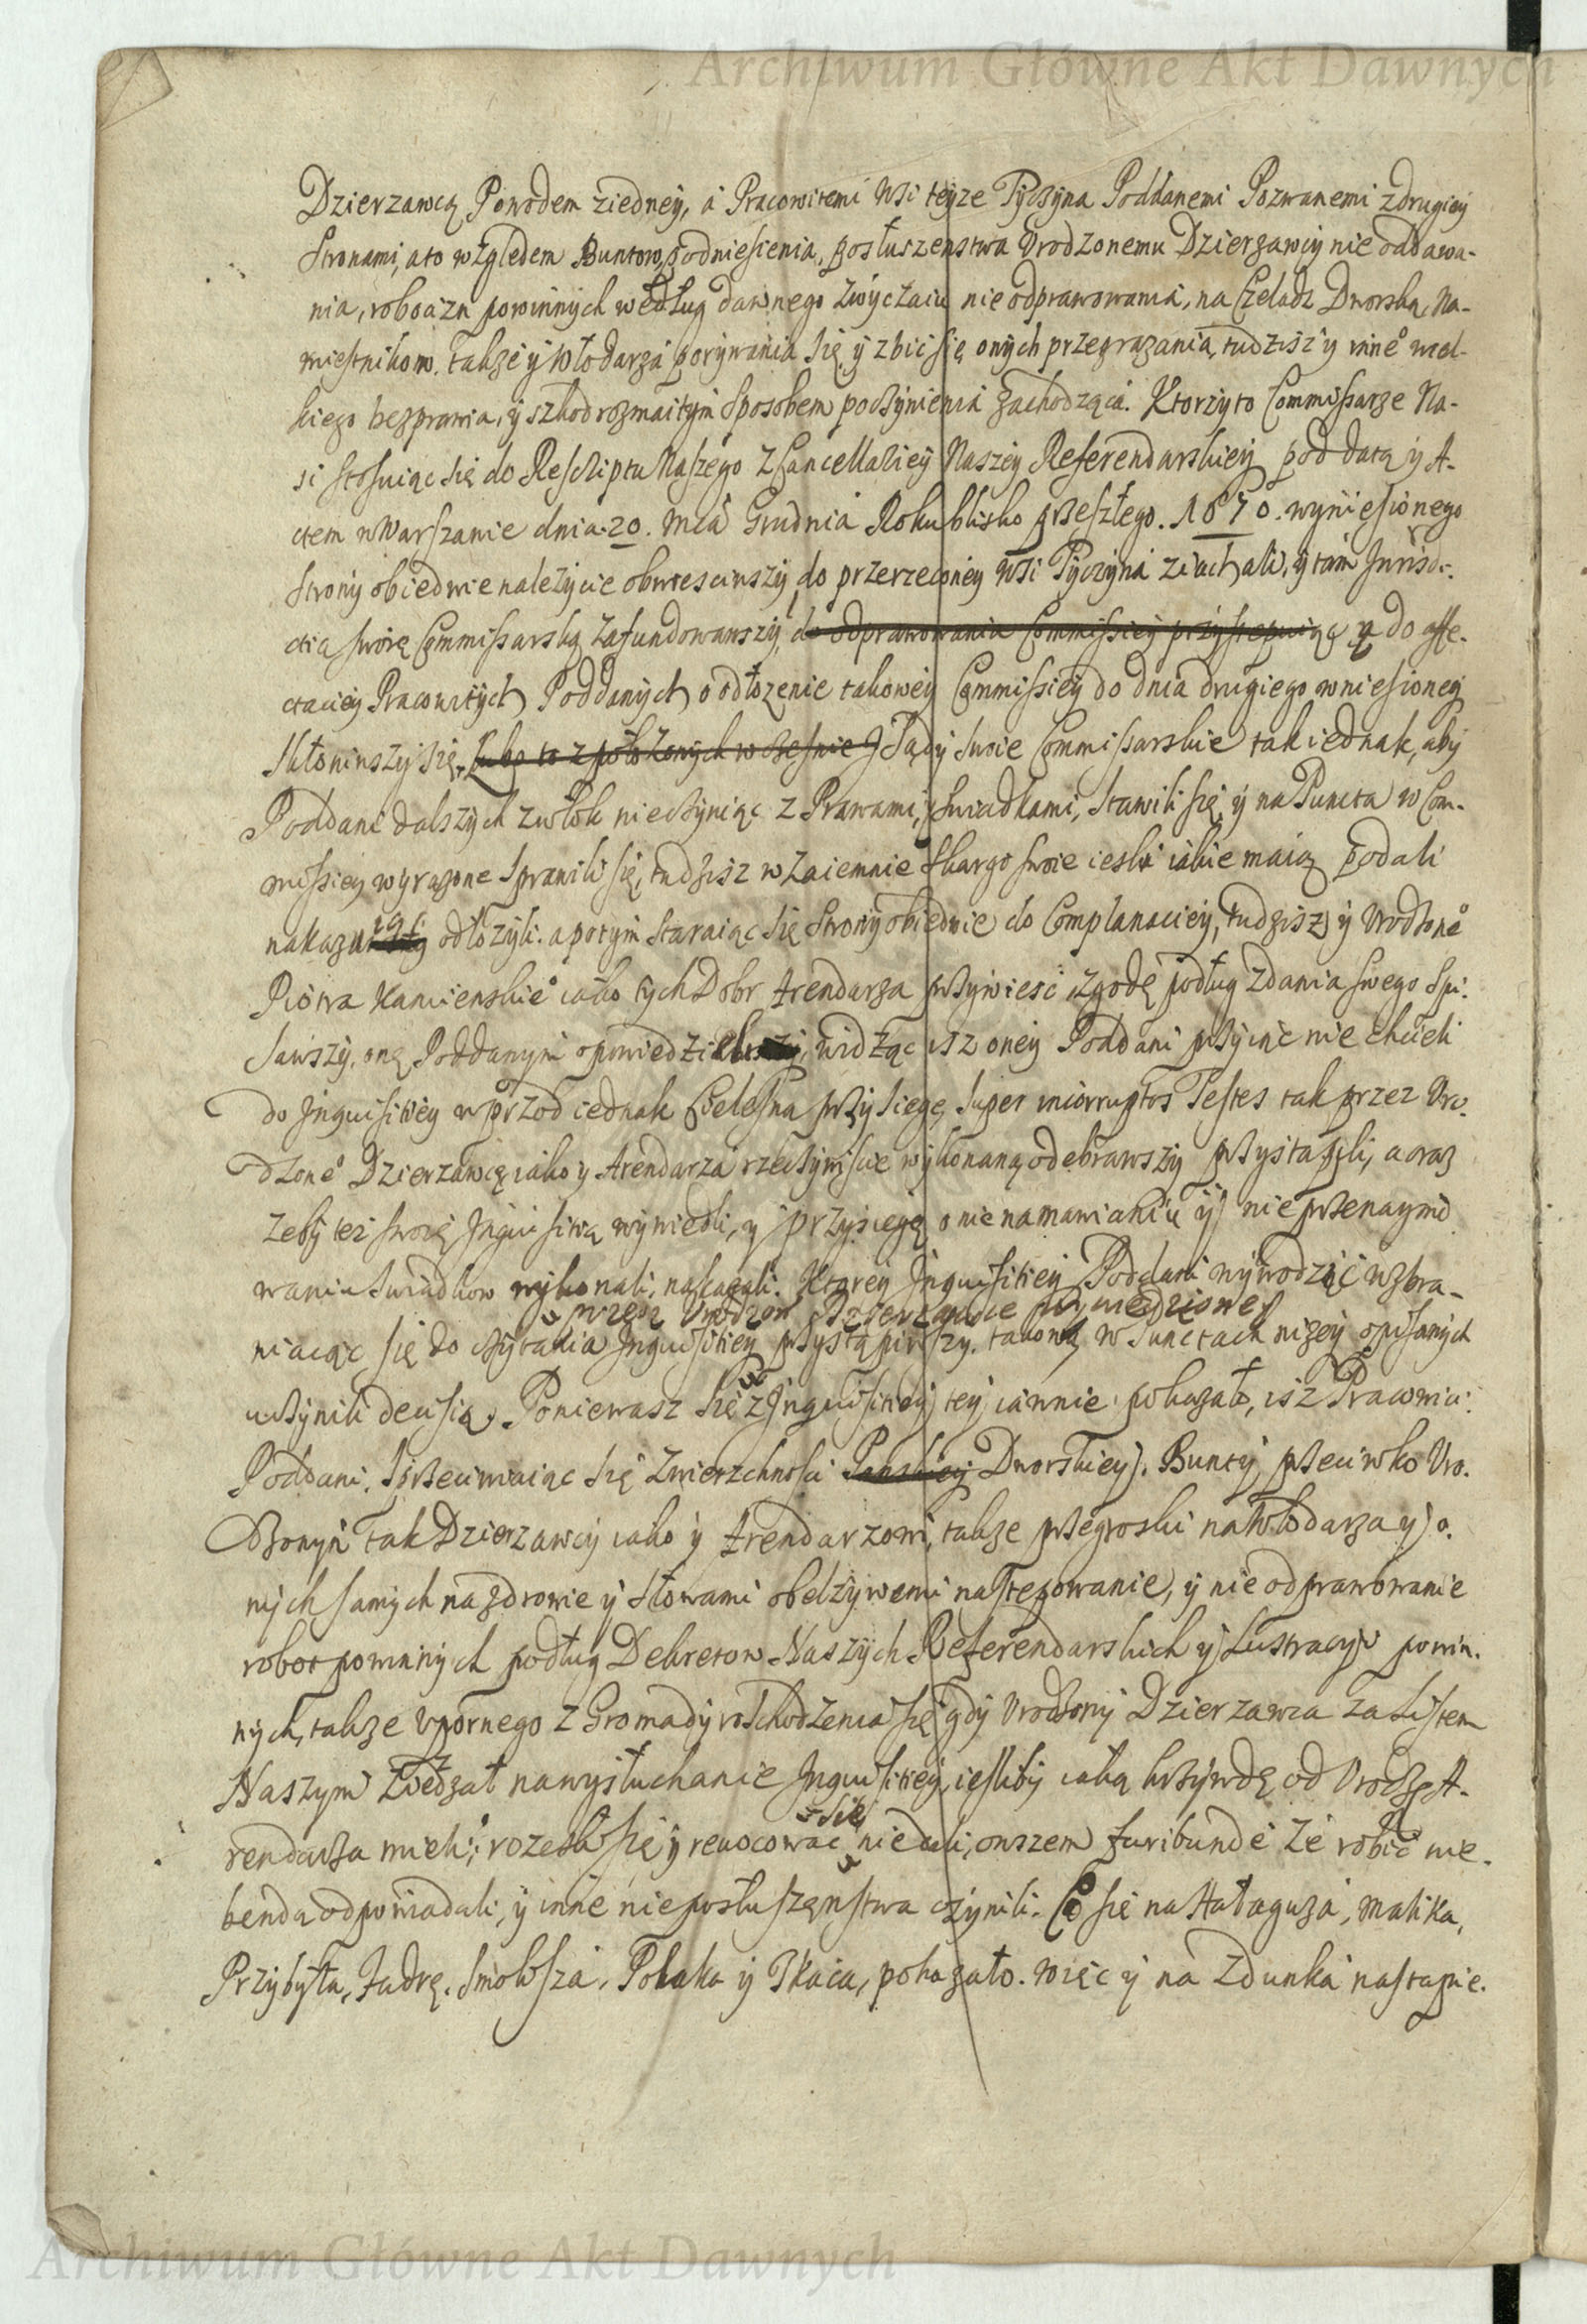 Archiwum Główne Akt Dawnych
Dzierzawcą Powodem ziedney, á Pracowitemi Wsi teyze Tyczyna Poddanemi Pozwanemi zdrugiey
Stronami, a to względem Buntow podniesienia, posłuszenstwa Vrodzonemu Dzierzawcy nie oddawa-
nia, roboczn powinnych według dawnego zwyczaiu nie odprawowania, na Czeladz Dworską, Na-
miestnikow. takze y Włodarzá porywania się y zbić się onych przegrazania, tudzisz y inne° wiel-
kiego bezprawia, y szkod rozmaitym sposobem poczynienia zachodząca. Ktorzy to Commissarze Na-
si stosuiąc się do Rescriptu Naszego z Cancellariey Naszey Referendarskiey pod datą y A-
ctem w Warszawie dnia 20. Mcá Grudnia Roku blisko przeszłego. 1670. wyniesionego
Strony obiedwie nalezycie obwiesciwszy, do przerzeconey Wsi Tyczyna ziachali, y tam Jurisdi-
ctią swoię Commissarską zafundowawszy, do odprawowania Commissiey przystępuiąc y do affe-
ctaciey Pracowitych Poddanych o odłozenie takowey Commissiey do dnia drugiego wniesioney
Skłoniwszy się, lubo to z połozonych w czesnie Sądy swoie Commissarskie tak iednak, aby
Poddani dalszych zwłok nieczyniąc z Prawami, y swiadkami, stawili się y na Puncta w Com-
missiey wyrazone sprawili się, tudzisz wzaiemnie skargo swoie iesli iakie maią podali
nakazu odłozyli. a potym staraiąc się Strony obiedwie do Complanaciey, tudzisz y Vrodzone°
Piotra Kamienskie° iako tych Dobr Arendarza przywiesc zgodę podług zdania swego spi-
sawszy, onę Poddanym opowiedzieli, widząc isz oney Poddani przyiąć nie chcieli
do Inquisitiey wprzod iednak Cielesna przysięgę super incorruptos Testes tak przez Vro-
dzone° Dzierzawcę iako y Arendarza rzeczywiscie wykonaną odebrawszy przystąpili, a oraz
zeby tez swoię Inquisitią wywiedli, y przysięgę o nie namawianiu y nie przenaymo
waniu swiadkow wykonali, nakazali. Ktorey Inquisitiey Poddani wywodzić wzbra-
przez Vrodzon Dzierzawce wywiedzioney
niaiąc się do czytania Inquisitiey przystąpiwszy. takową w Punctach nizey opisanych
uczynili decisią. Poniewasz się z Inquisitiey tey iawnie pokazało, isz Pracowici
Poddani, sprzeciwiaiąc się Zwierzchnosci Panskiey Dworskiey. Bunty przeciwko Vro-
dzonym tak Dzierzawcy iako y Arendarzowi, takze przegroski na Włodarza y o-
nych samych na zdrowie y słowami obelzywemi nastepowanie, y nie odprawowanie
robot powinnych podług Dekretow Naszych Referendarskich y Lustracyi powin-
nych, takze vpornego z Gromady roschodzenia się gdy Vrodzony Dzierzawca za Listem
Naszym zwedzał na wysłuchanie Inquisitiey, iesliby iaką krzywdę od Vrodzo A-
się
rendarza mieli; rozeszli się y reuocować niedali, owszem furibundè ze robić nie-
benda odpowiadali, y inne nieposłuszęnstwa czynili. Co się na Hałaguzá, Malika,
Przybyła, Jadrę, Smolsza, Polaka y Tkáca, pokazało. więc y na Zdunka nastapie.
Archiwum Główne Akt Dawnych